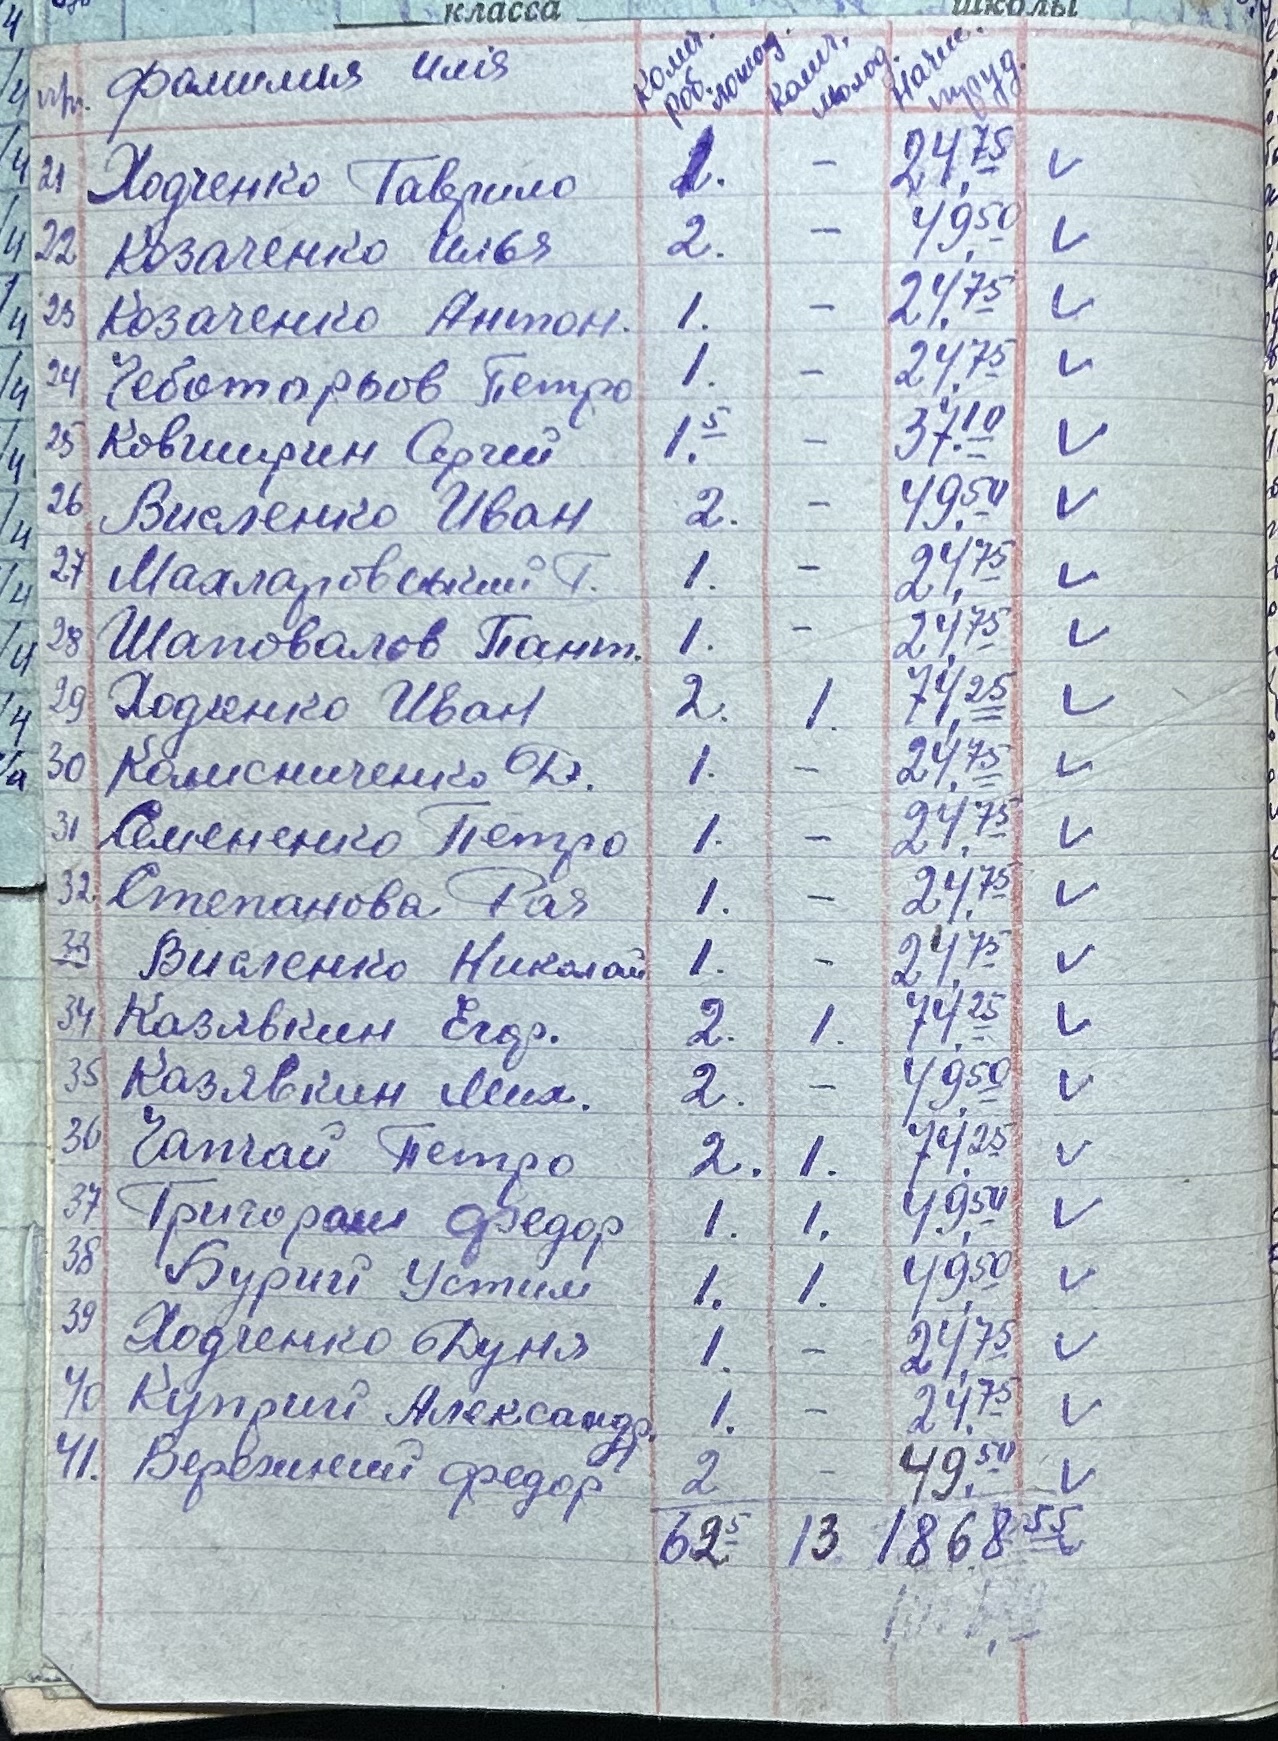 класса школы
№п. фамилия имія Колич. роб. лошад. Колич. молод. Начис. труд.
21 Ходченко Гаврило 1. - 24,75 ✓
22 Козаченко Илья 2. - 49,50 ✓
23 Козаченко Антон. 1. - 24,75 ✓
24 Чеботарьов Петро 1. - 24,75 ✓
25 Ковширин Сергий 1.5 - 37.10 ✓
26 Висленко Иван 2. - 49,50 ✓
27 Т. 1. - 24,75 ✓
28 Шаповалов Пант. 1. - 24,75 ✓
29 Ходченко Иван 2. 1. 74,25 ✓
30 Колисниченко Д. 1. - 24,75 ✓
31 Семененко Петро 1. - 24,75 ✓
32. Степанова Рая 1. - 24,75 ✓
33 Висленко Николай 1. - 24,75 ✓
34 Казявкин Егор. 2. 1. 74,25 ✓
35 Казявкин Мих. 2. - 49,50 ✓
36 Чапчай Петро 2. 1. 74,25 ✓
37 Григораш Федор 1. 1. 49,50 ✓
38 Бурий Устим 1. 1. 49,50 ✓
39 Ходченко Дуня 1. - 24,75 ✓
40 Куприй Александр. 1. - 24,75 ✓
41. Вережний Федор 2 - 49,50 ✓
62.5 13 1868 55